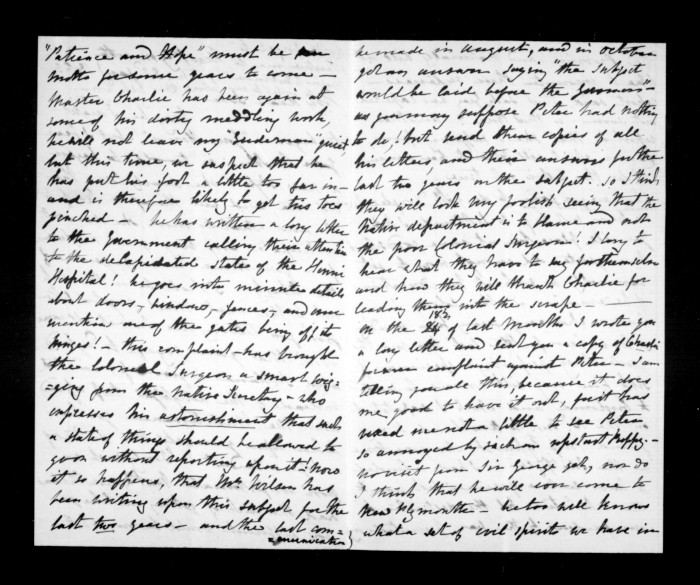 "Patience and Hope" must be our
motto for some years to come —
Master Charlie has been again at
some of his dirty meddling work,
he will not leave my "Gudeman" quiet,
but this time we suspect that he
has put his foot a little too far in —
and is therefore likely to get his toes
pinched — he has written a long letter
to the Government calling their attention
to the delapidated state of the Henui
Hospital! he goes into minute details
about doors, windows, fences, and even
mention one of the gates being off its
hinges! — this complaint has brought
the Colonial Surgeon a smart wig=
=ging from the Native Secretary — who
expresses his astonishment that such
a state of things should be allowed to
go on without reporting upon it: Now
it so happens, that Mr Wilson has
been writing upon this subject for the
last two years — and the last com=
=munication
he made in August, and in October
got an answer saying "the subject
would be laid before the Governor" —
as you may suppose Peter had nothing
to do, but send them copies of all
his letters, and their answers for the
last two years on the subject. So I think
they will look very foolish seeing that the
Native department is to blame and not
the poor Colonial Surgeon! I long to
hear what they have to say for themselves
and how they will thank Charlie for
leading them into the scrape —
on the 18th of last month I wrote you
a long letter and sent you a copy of Charlie's
former complaint against Peter — I am
telling you all this, because it does
me good to have it out, for it has
vexed me not a little to see Peter
so annoyed by such an upstart Puppy. —
no visit from Sir George yet, nor do
I think that he will soon come to
New Plymouth — he too well knows
what a set of evil spirits we have in